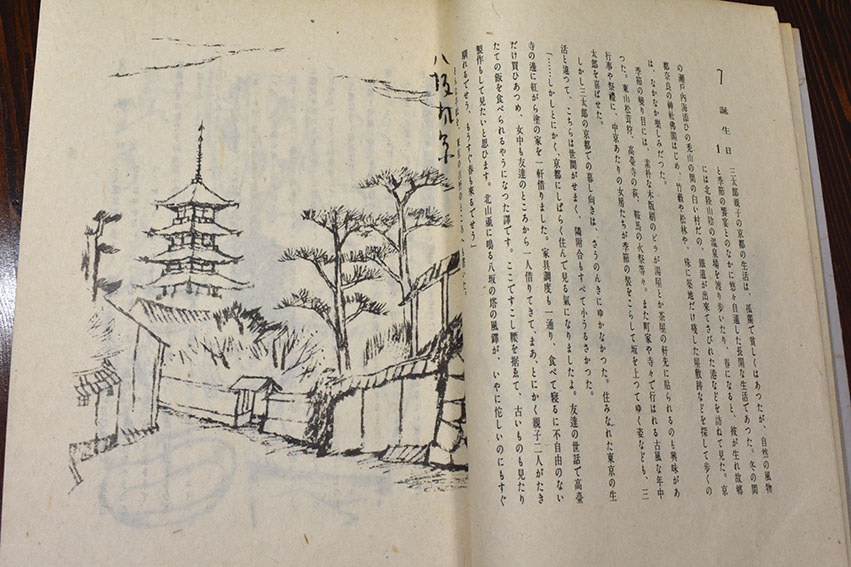 7　誕生日
1
三太郎親子の京都の生活は、孤獨で貧しくはあつたが、自然の風物
と季節の饗宴とのなかに悠々自適した長閑な生活であつた。冬の間
には北陸山陰の温泉場を渡り歩いたり、春になると、彼が生れ故郷
の瀬戸内海沿ひの禿山の間の白い村だの、鐵道が出來てさびれた港などを訪ねて見た。京
都奈良の神社佛閣はじめ、竹藪や松林や、殊に築地だけ殘した屋敷跡などを探して歩くの
は、なかなか樂しみだつた。
季節の變り目には、素朴な木版刷のビラが湯屋とか茶屋の軒先に貼られるのも興味があ
つた。東山松茸狩、高臺寺の萩、鞍馬の火祭等々。また町家や寺々で行はれる古風な年中
行事や祭禮に、中京あたりの女房たちが季節の裝をこらして坂を上つてゆく姿なども、三
太郎を喜ばせた。
しかし三太郎の京都での暮し向きは、さうのんきにゆかなかつた。住みなれた東京の生
活と違つて、こちらは世間がせまく、隣附合もすべて小うるさかつた。
「……しかしとにかく、京都にしばらく住んで見る氣になりましたよ。友達の世話で高臺
寺の邊に紅がら塗の家を一軒借りました。家具調度も一通り、食べて寢るに不自由のない
だけ買ひあつめ、女中も友達のところから一人借りてきて、まあ、とにかく親子二人がたき
たての飯を食べられるやうになつた譯です。ここですこし腰を据ゑて、古いものも見たり
製作もして見たいと思ひます。北山颪に鳴る八坂の塔の風鐸が、いやに侘しいのにもすぐ
馴れるでせう、もうすぐ春も來るでせう」